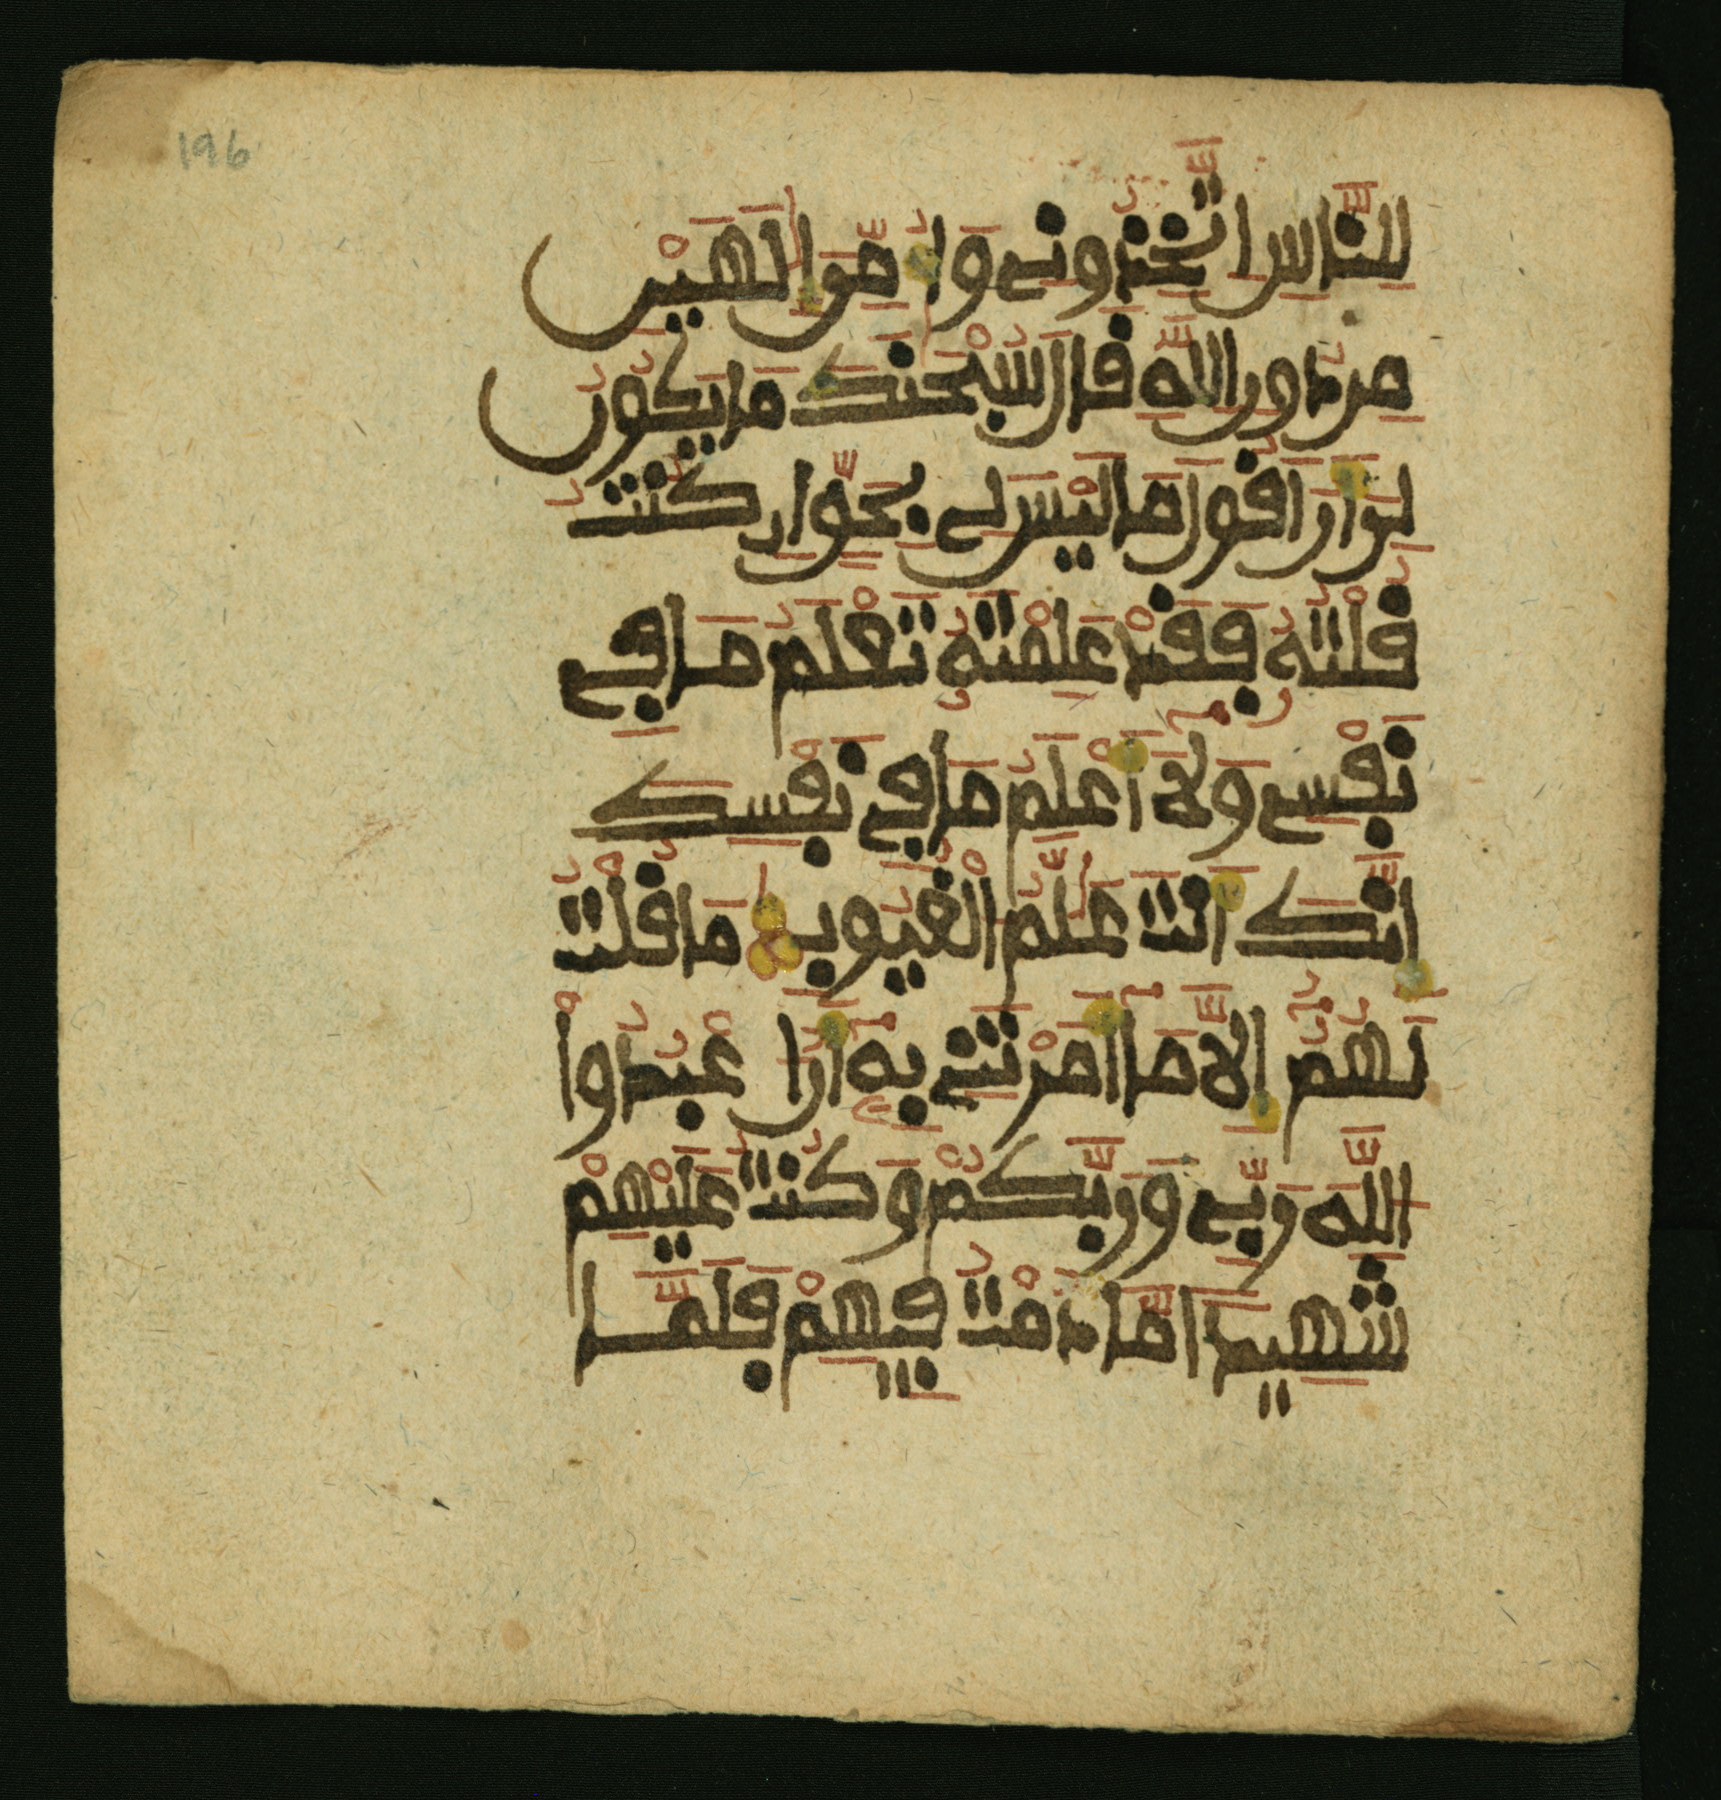 196
لِلنَّاسِ اتَّخِذُونِے وَأُمِّيَ إِلَٰهَيْنِ
مِن دُونِ اللَّهِ قَالَ سُبْحَٰنَكَ مَا يَكُونُ
لِيَ أَنْ أَقُولَ مَا لَيْسَ لِے بِحَقٍّ إِن كُنتُ
قُلْتُهُ فَقَدْ عَلِمْتَهُ تَعْلَمُ مَا فِے
نَفْسِے وَلَآ أَعْلَمُ مَا فِے نَفْسِكَ
إِنَّكَ أَنتَ عَلَّٰمُ الْغُيُوبِ مَا قُلْتُ
لَهُمُۥٓ إِلَّا مَآ أَمَرْتَنِے بِهِۦٓ أَنُ اعْبُدُوا
اللَّهَ رَبِّے وَرَبَّكُمْ وَكُنتُ عَلَيْهِمْ
شَهِيدًا مَّا دُمْتُ فِيهِمْ فَلَمَّا